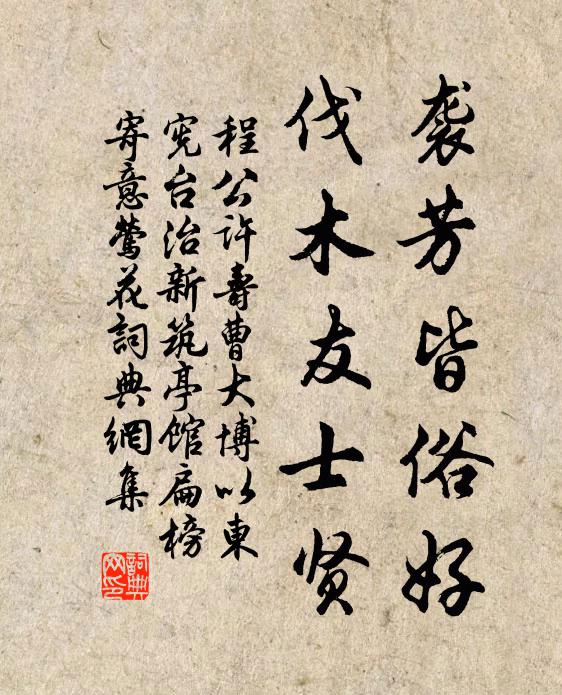 袭芳皆俗好
伐木友士贤
程公許壽曹大博以東
宪台治新筑亭館扁榜
寄意鶯花詞典網集
詞典
网印